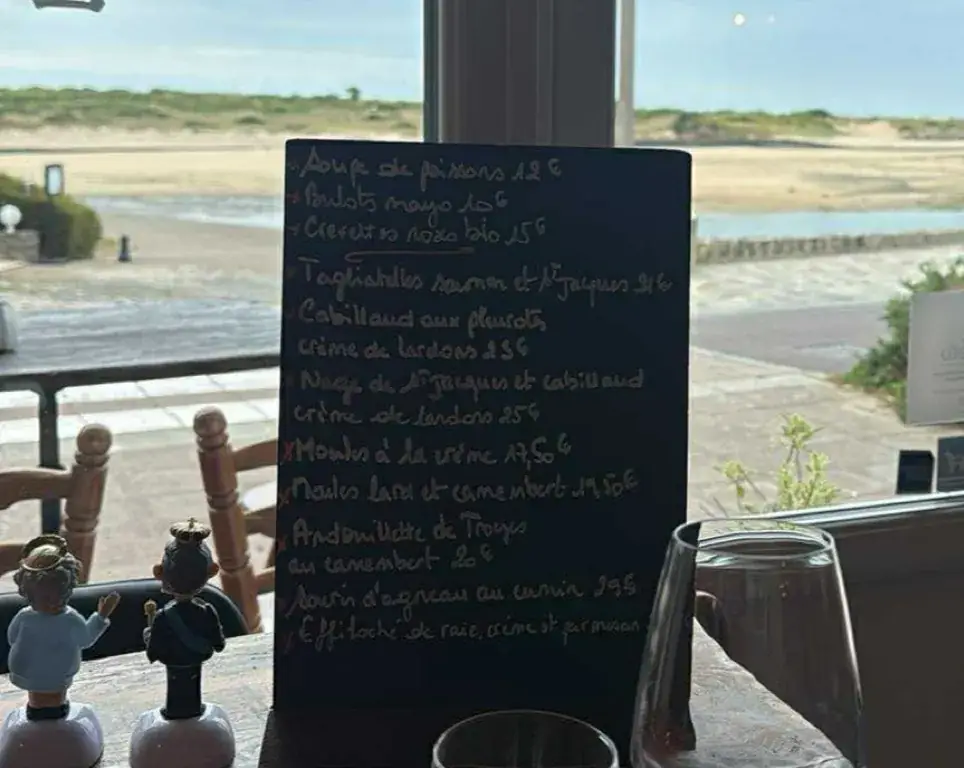 Soupe de poissons 12€
Bulots mayo 10€
Crevettes roses bio 15€
Tagliatelles saumon et St Jacques 21€
Cabillaud aux pleurotes
crème de lardons 23€
Nage de St Jacques et cabillaud
crème de lardons 25€
Moules à la crème 17,50€
Moules lard et camembert 19,50€
Andouillette de Troyes
au camembert 20€
Souris d'agneau au cumin 29€
Effiloché de raie, crème et parmesan